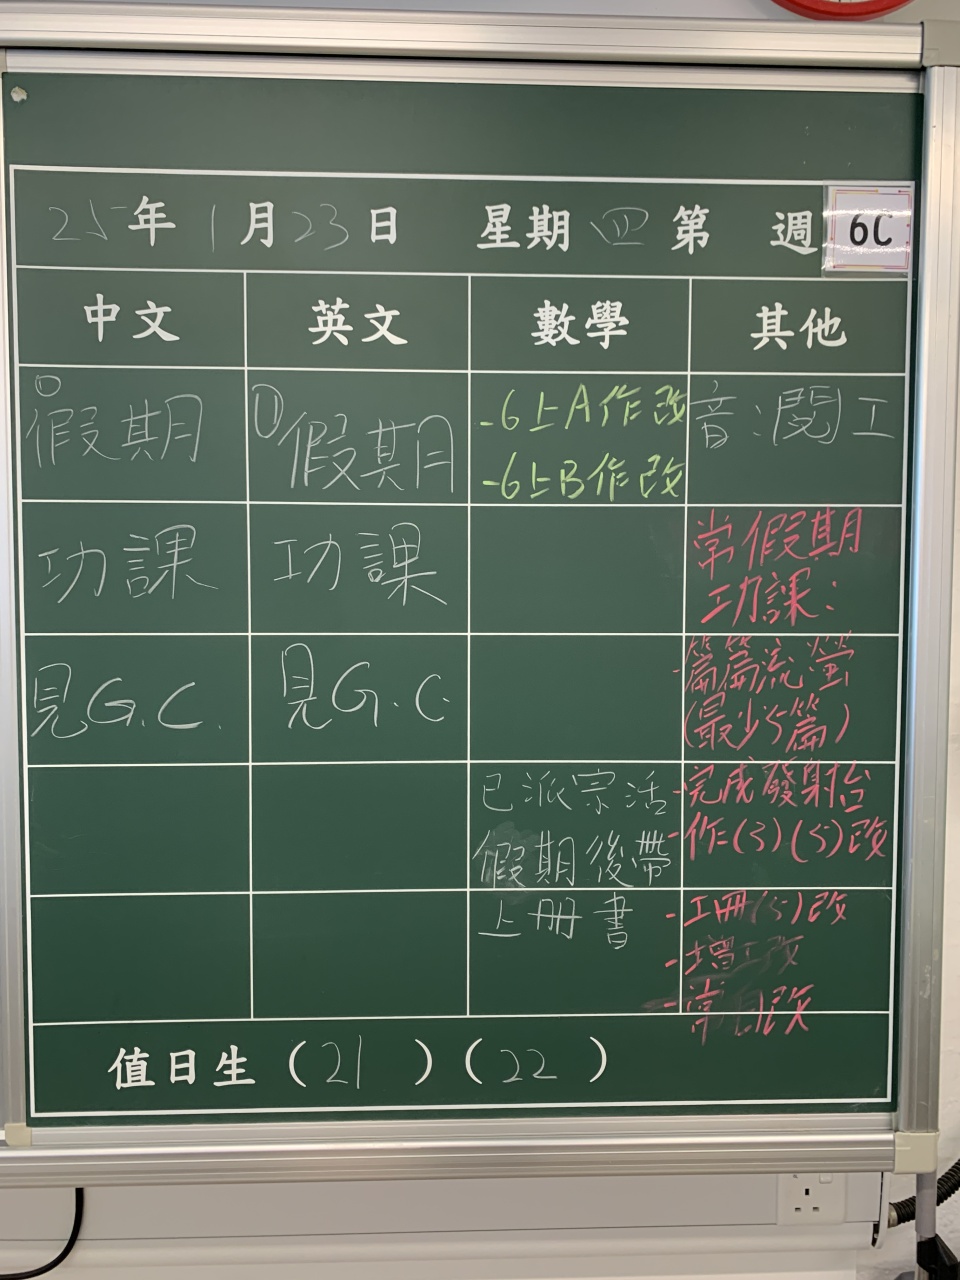 25年1月23日 星期四 第 週 6C
中文 英文 數學 其他
①假期
功課
見G.C.
①假期
功課
見G.C.
-6上A作改
-6上B作改
已派宗活
假期後帶
上冊書
音:閱工
常假期
功課:
-篇篇流螢
(最少5篇)
-完成發射台
-作(3)(5)改
-工冊(5)改
-增工改
-常 改
值日生(21)(22)